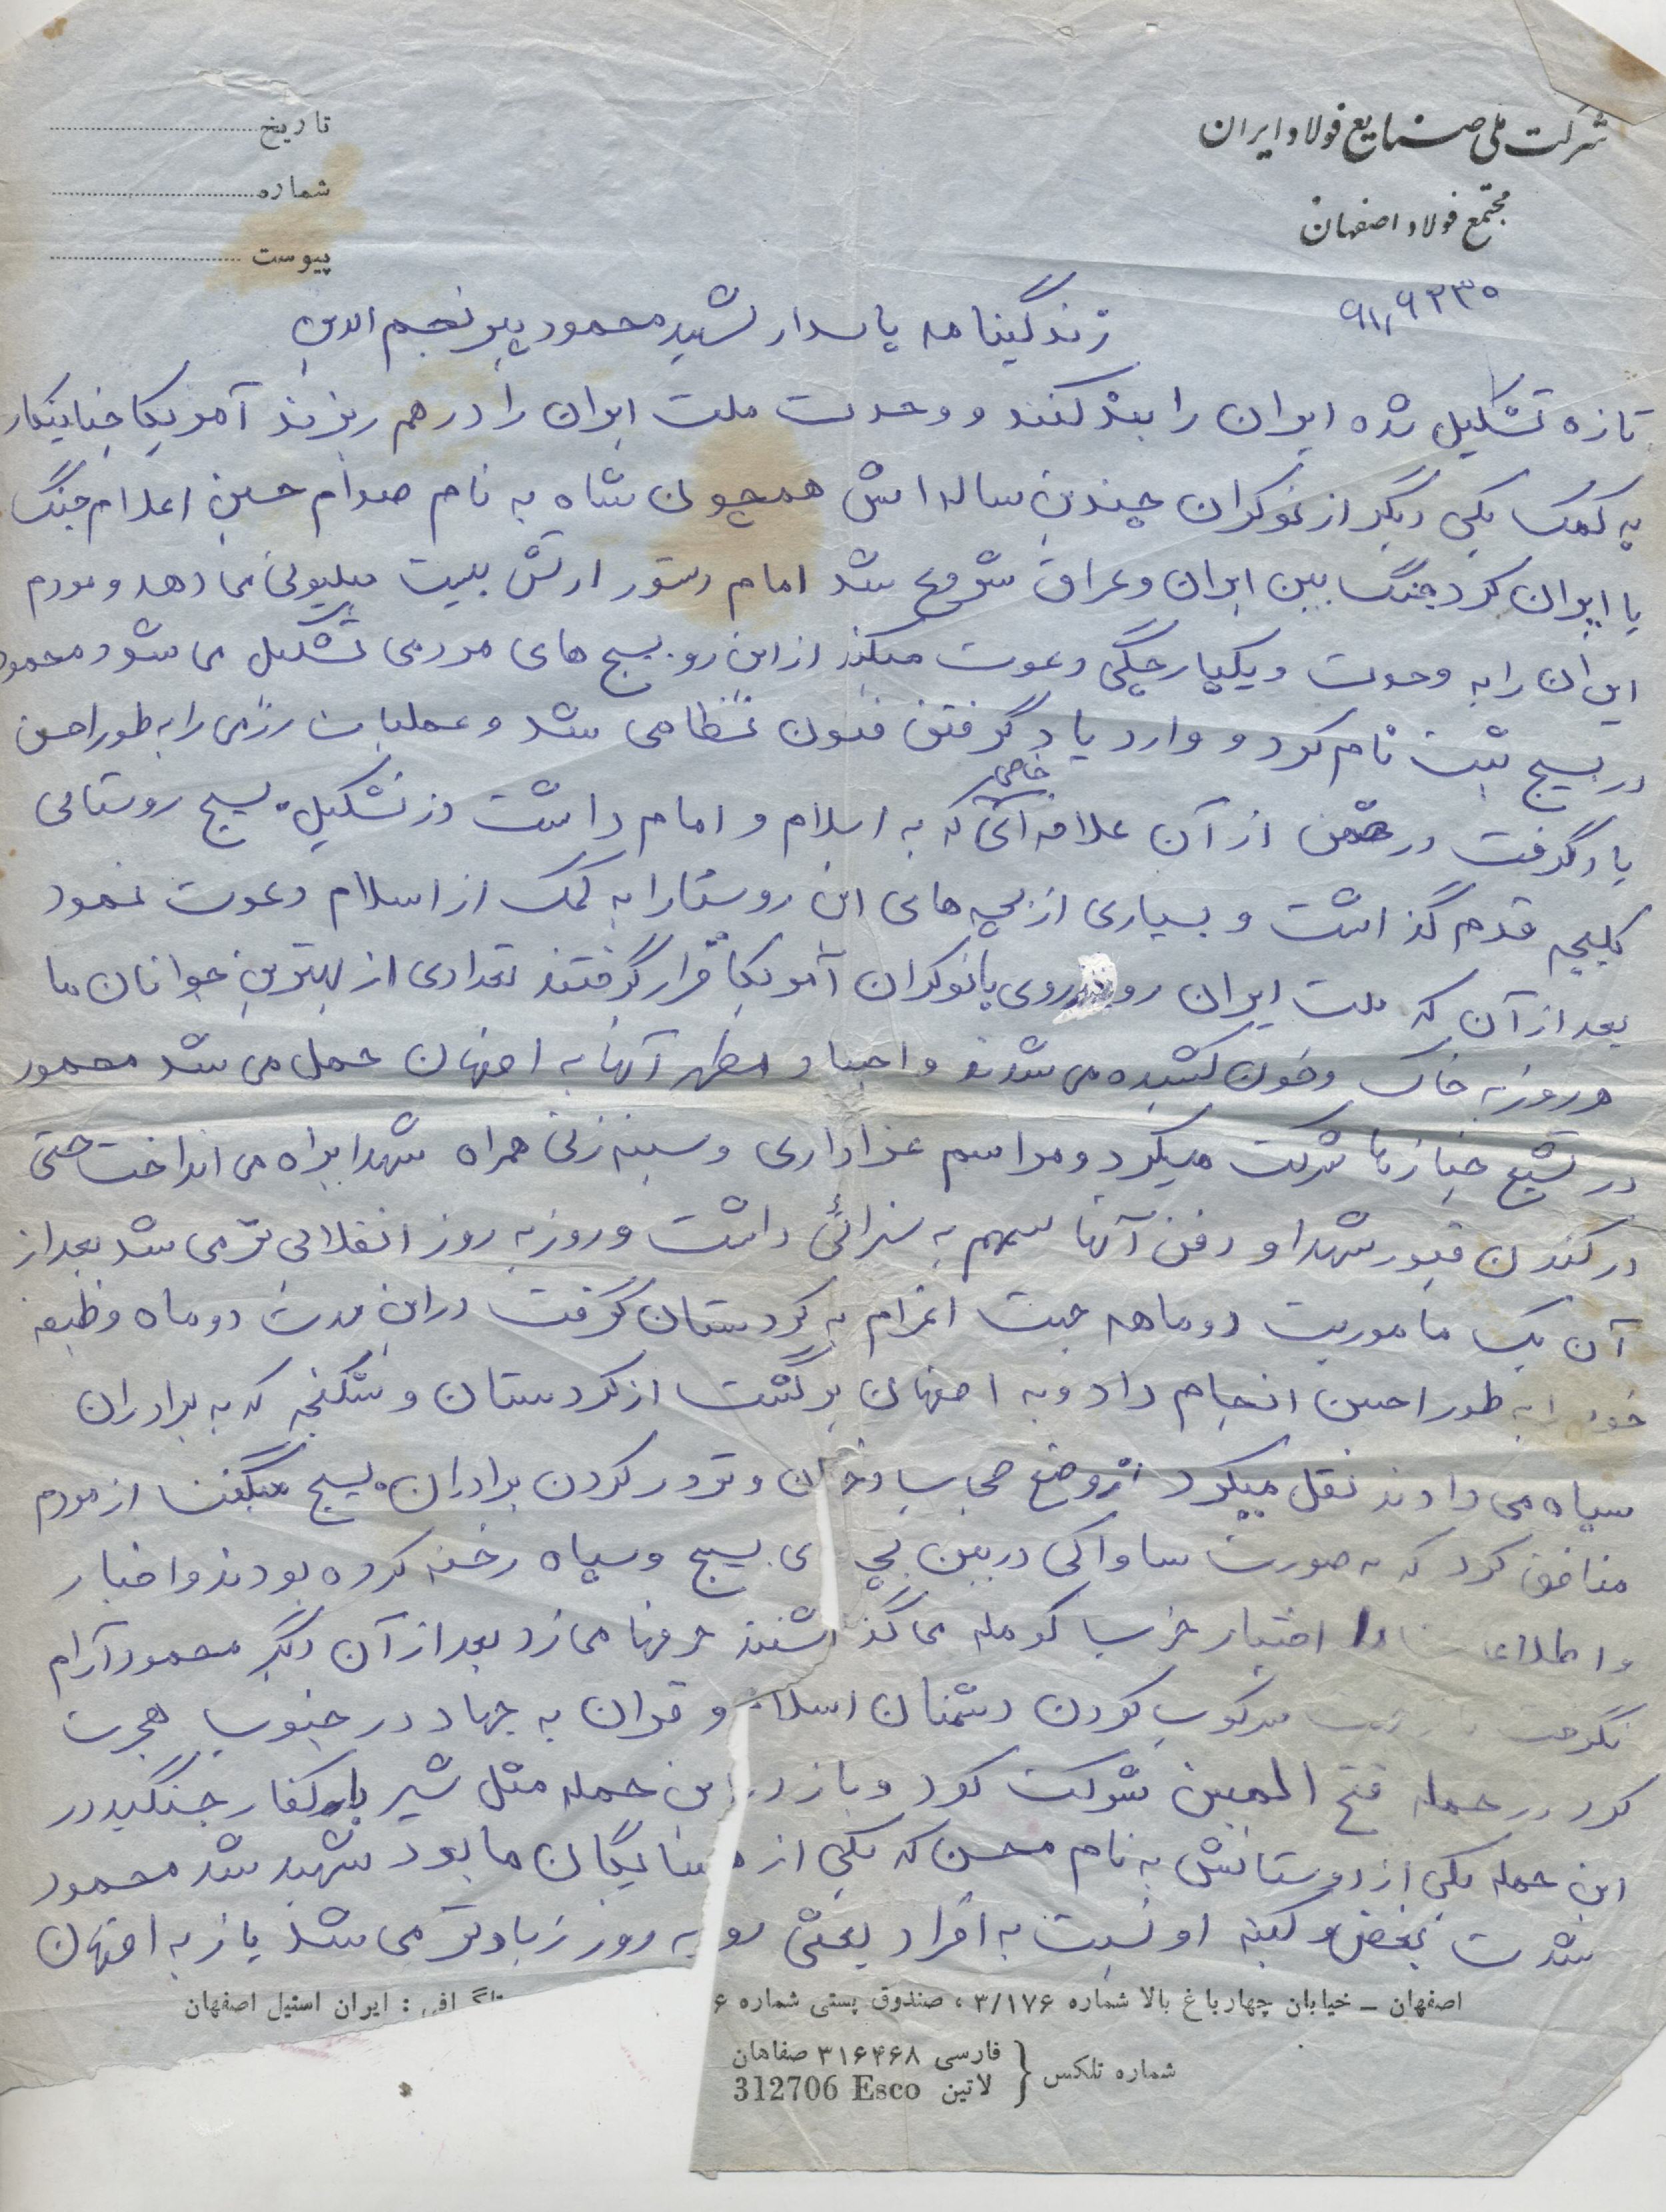 شرکت ملی صنایع فولاد ایران
مجتمع فولاد اصفهان
تاریخ
شماره
پیوست
زندگینامه پاسدار شهید محمود پیر نجم الدین
تازه تشکیل شده ایران را بند کنند و وحدت ملت ایران را در هم ریزند آمریکا جنایتکار
به کمک یکی دیگر از نوکران چندین ساله اش همچون شاه به نام صدام حسین اعلام جنگ
با ایران کرد جنگ بین ایران و عراق شروع شد امام دستور ارتش بیست میلیونی می دهد و مردم
ایران را به وحدت و یکپارچگی دعوت میکند از این رو بسیج های مردمی تشکیل می شود محمود
در بسیج ثبت نام کرد و وارد یاد گرفتن فنون نظامی شد و عملیات رزمی را به طور احسن
یاد گرفت در ضمن از آن علاقه خاصی که به اسلام و امام داشت در تشکیل بسیج روستائی
قدم گذاشت و بسیاری از بچه های این روستا را به کمک از اسلام دعوت نمود
بعد از آن که ملت ایران رو در روی با نوکران آمریکا قرار گرفتند تعدادی از بهترین جوانان ما
هر روز به خاک و خون کشیده می شدند و اجساد مطهر آنها به اصفهان حمل می شد محمود
در تشیع جنازه ها شرکت میکرد و مراسم عزاداری و سینه زنی همراه شهدا براه می انداخت حتی
در کندن قبور شهدا و دفن آنها سهم به سزائی داشت و روز به روز انقلابی تر می شد بعد از
آن یک ماموریت دو ماهه جهت اعزام به کردستان گرفت در این مدت دو ماه وظیفه
خود را به طور احسن انجام داد و به اصفهان برگشت از کردستان و شکنجه که به برادران
سپاه می دادند نقل میکرد از وضع و ترور کردن برادران بسیج میگفت از مردم
منافق کرد که به صورت ساواکی در بین بچه های بسیج و سپاه رخنه کرده بودند و اخبار
و اطلاعات را اختیار حزب کومله می گذاشتند حرفها می زد بعد از آن دیگر محمود آرام
نگرفت سرکوب کردن دشمنان اسلام و قران به جهاد در جنوب هجرت
کرد در حمله فتح المبین شرکت کرد و باز در این حمله مثل شیر با کفار جنگید در
این حمله یکی از دوستانش به نام محسن که یکی از همسایگان ما بود شهید شد محمود
شدت بغض و کینه او نسبت به افراد بعثی رو به روز زیادتر می شد باز به اصفهان
اصفهان ـ خیابان چهارباغ بالا شماره ۳/۱۷۶ ، صندوق پستی شماره ۶
: ایران استیل اصفهان
شماره تلکس { فارسی ۳۱۶۴۶۸ صفاهان
لاتین 312706 Esco